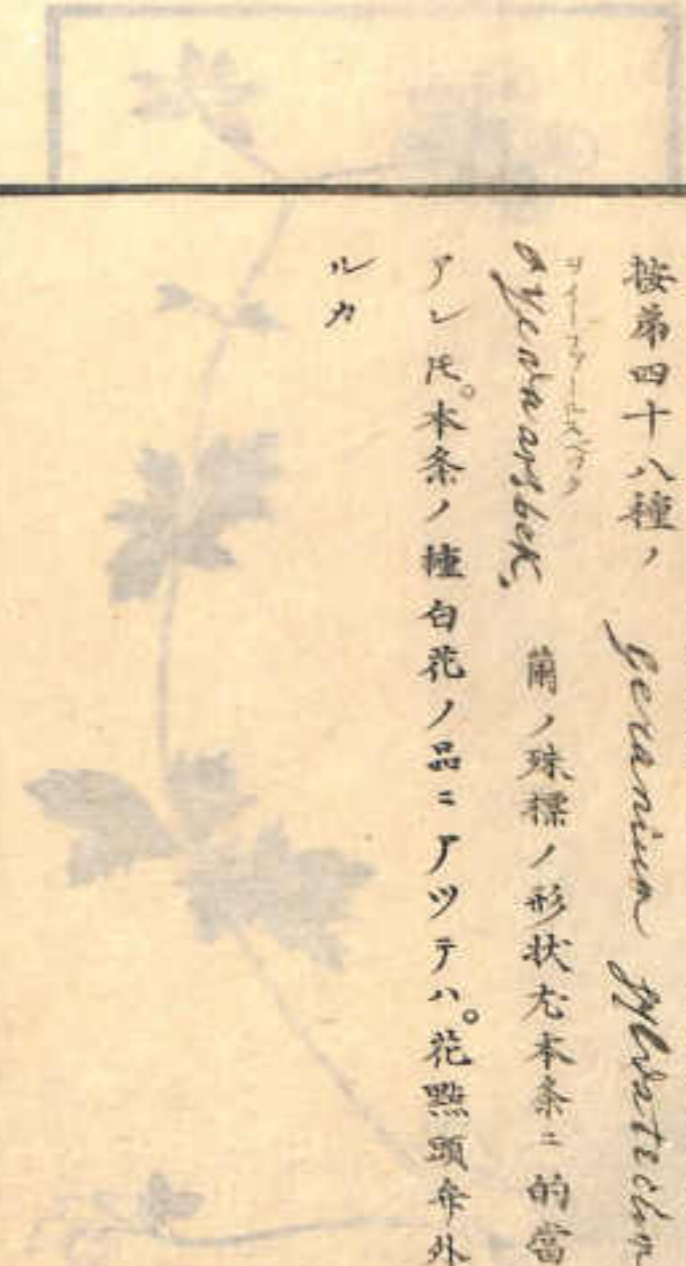 按苐四十八種ノ geranium sylvaticum
oyevaarsbek, 蘭ノ殊標ノ形状尤本条ニ的當
アレ𪜈。本条ノ種白花ノ品ニアツテハ。花點頭弁外
ルカ